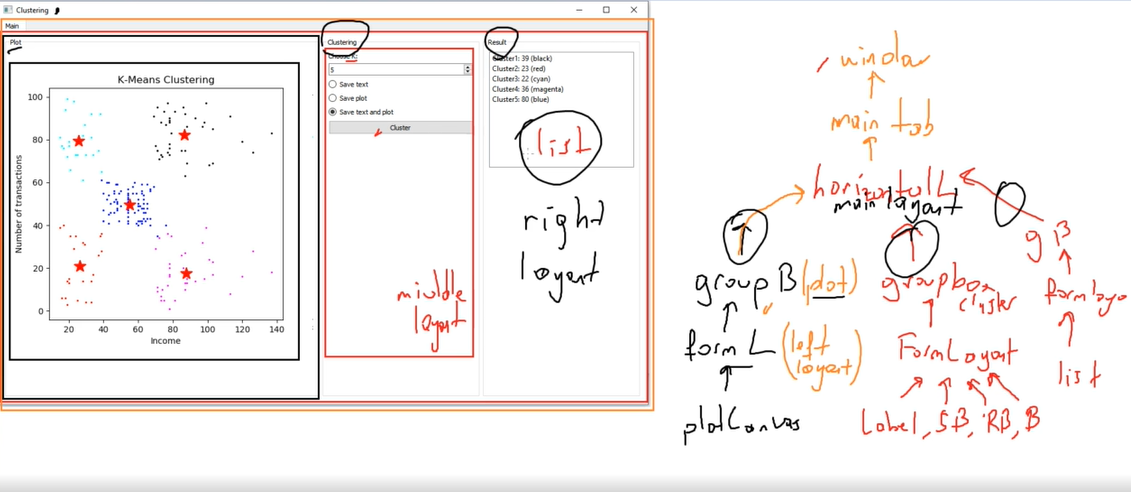 Clustering
Main
Plot
K-Means Clustering
Number of transactions
100
80
60
40
20
0
20 40 60 80 100 120 140
Income
Clustering
Choose K:
5
Save text
Save plot
Save text and plot
Cluster
middle
layout
Result
Cluster1: 39 (black)
Cluster2: 23 (red)
Cluster3: 22 (cyan)
Cluster4: 36 (magenta)
Cluster5: 80 (blue)
list
right
layout
window
main tab
horizontal L
main layout
groupB (plot)
form L (left
layout)
plotCanvas
groupbox
cluster
FormLayout
Label, SB, RB, B
gB
formlayo
list